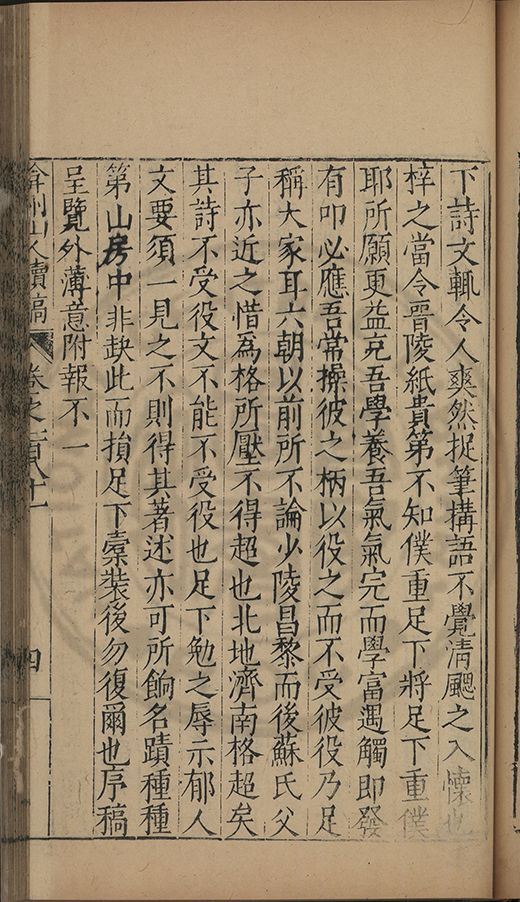 下詩文輒令人爽然捉筆搆語不覺清飈之入懷也
梓之當令晉陵紙貴第不知僕重足下將足下重僕
耶所願更益充吾學養吾氣氣完而學富遇觸即發
有叩必應吾常操彼之柄以役之而不受彼役乃足
稱大家耳六朝以前所不論少陵昌黎而後蘇氏父
子亦近之惜為格所壓不得超也北地濟南格超矣
其詩不受役文不能不受役也足下勉之辱示郁人
文要須一見之不則得其著述亦可所餉名蹟種種
第山房中非缺此而損足下橐装後勿復爾也序稿
呈覽外薄意附報不一
弇州山人續稿 卷之一百八十一 四